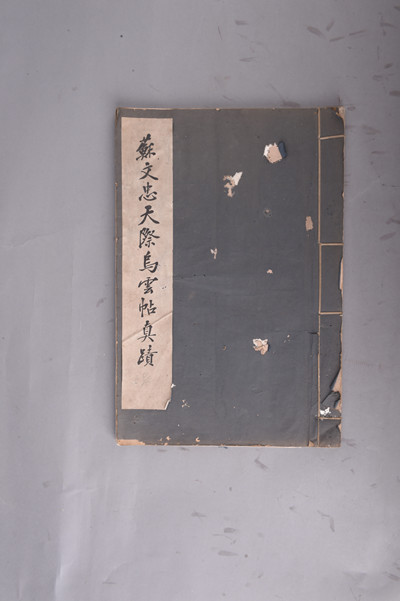 蘇文忠天際烏雲帖真蹟